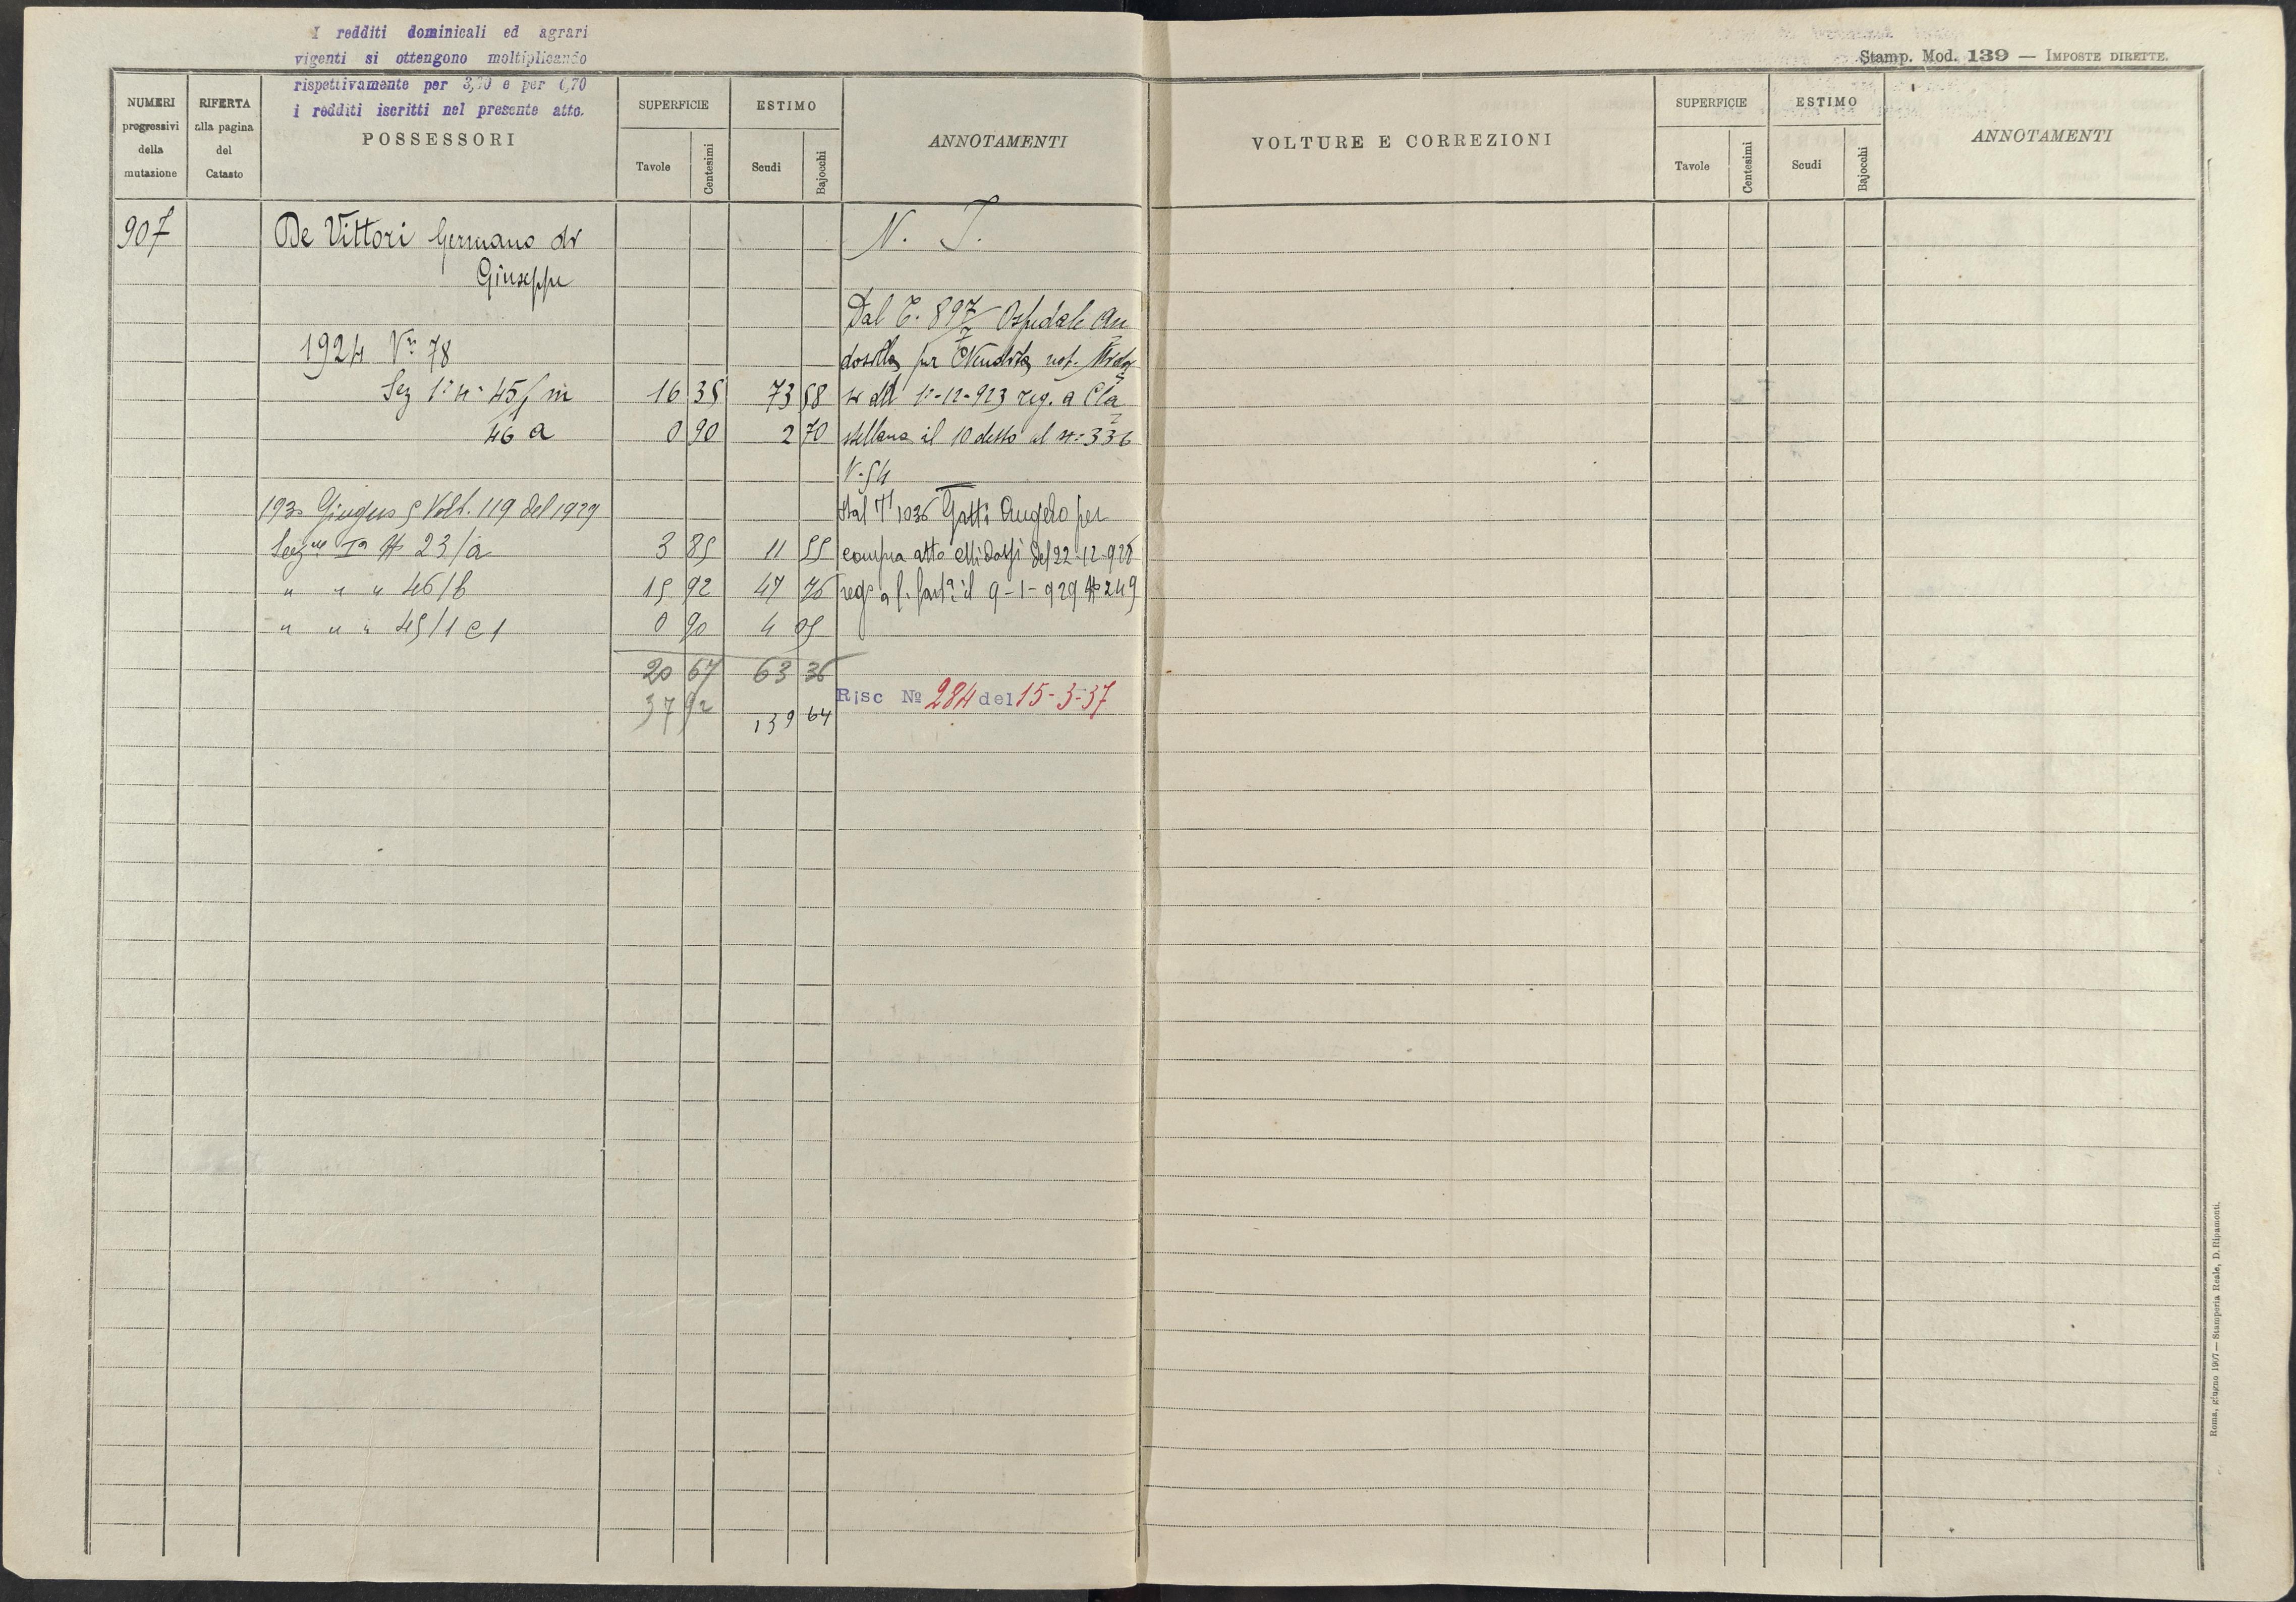 I redditi dominicali ed agrari
vigenti si ottengono moltiplicando
rispettivamente per 3,70 e per 0,70
i redditi iscritti nel presente atto.
Stamp. Mod. 139 — IMPOSTE DIRETTE.
NUMERI progressivi della mutazione
RIFERTA alla pagina del Catasto
POSSESSORI
SUPERFICIE
Tavole
Centesimi
ESTIMO
Scudi
Bajocchi
ANNOTAMENTI
VOLTURE E CORREZIONI
SUPERFICIE
Tavole
Centesimi
ESTIMO
Scudi
Bajocchi
ANNOTAMENTI
907 De Vittori Germano di N. T.
Giuseppe
Dal T. 897 Ospedale An
1924 Vra 78 dosilla per Vendita not. Midos
Sez 1ª n. 45/1 m 16 35 73 58 si del 1º-12-923 reg. a C/a
46 a 0 90 2 70 stellana il 10 detto al n. 336
V. 54
193 Giugno 5 Volt. 119 del 1929 Dal T 1036 Gatti Angelo per
Sezne Ia N 23/a 3 85 11 55 compra atto Midossi del 22-12-928
" " " 46/b 15 92 47 76 reg a il 9-1-929 N 249
" " " 45/1 c1 0 90 4 05
20 67 63 36
Risc No 284 del 15-3-37
37 92 139 64
Roma, giugno 1907 — Stamperia Reale, D. Ripamonti.